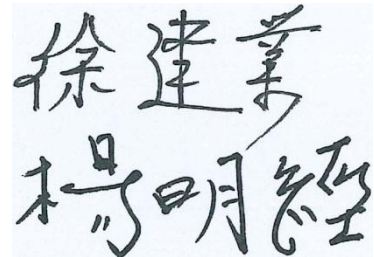 徐建業
楊明經